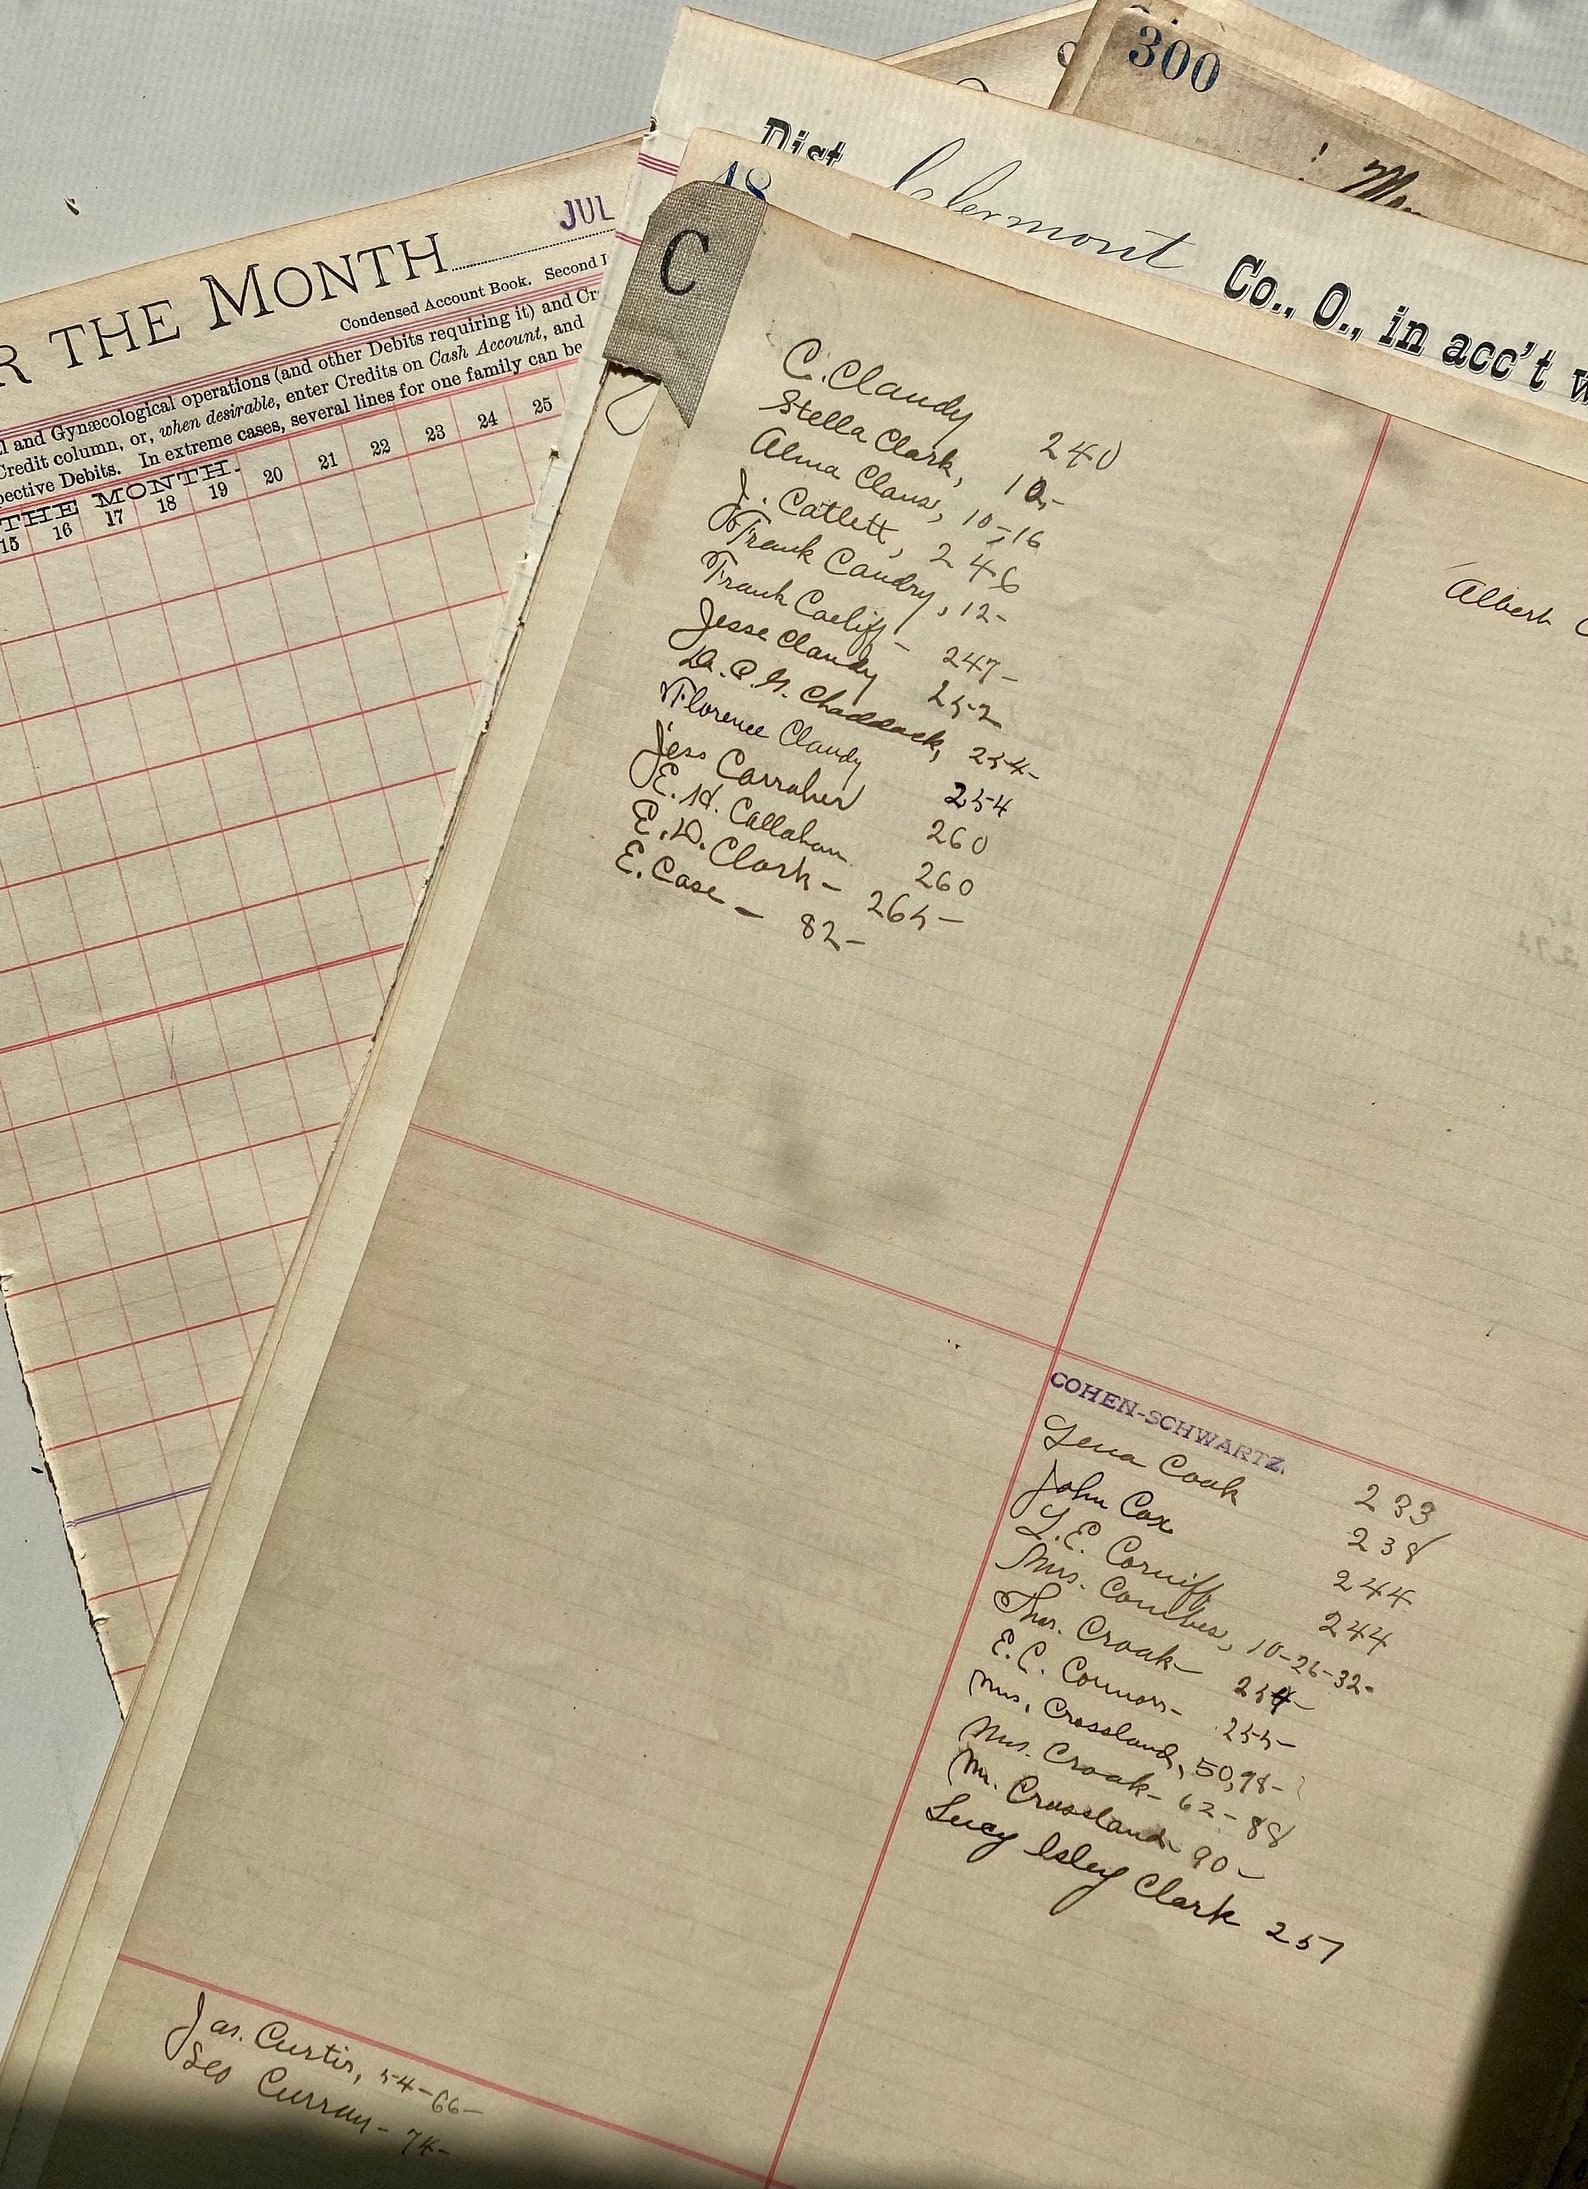 300
Dist. Clermont Co., O., in acc't w
48
C
R THE MONTH JUL
Condensed Account Book. Second
l and Gynæcological operations (and other Debits requiring it) and Cr
Credit column, or, when desirable, enter Credits on Cash Account, and
pective Debits. In extreme cases, several lines for one family can be
THE MONTH.
15 16 17 18 19 20 21 22 23 24 25
C. Claudy 240
Stella Clark, 10-
Alma Claus, 10-, 16
J. Catlett, 246
Frank Caudry, 12-
Frank 247-
Jesse Claudy 252
Dr. C. H. Chaddock, 254-
Florence Claudy 254
Jess Carraher 260
E. H. Callahan 260
E. D. Clark - 265-
E. Case - 82-
Albert C
COHEN-SCHWARTZ.
Lena Cook 233
John Cox 238
L. E. Corniff 244
Mrs. Combes, 10-26-32- 244
Thos. Croak- 254-
E. C. Connors- 255-
Mrs. Crossland, 50,98-
Mrs. Croak- 62-88
Mr. Crossland- 90-
Lucy Isley Clark 257
Jas. Curtis, 54-66-
Geo Curran- 74-